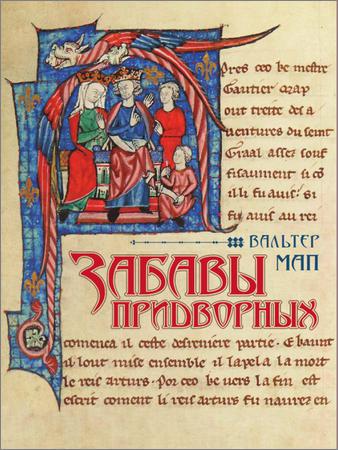 Pres ceo be mestre
Gautier map
out treite des a
uentures du seint
Graal assez souf
fisaument si cō
il li fu auis. si
fu auis au rei
ВАЛЬТЕР
МАП
ЗАБАВЫ
ПРИДВОРНЫХ
comença il ceste desreniere partie. E kaunt
il lout mise ensemble il lapel a la mort
le reis arturs. Por ceo ke vers la fin est
escrit coment li reis arturs fu naurez en